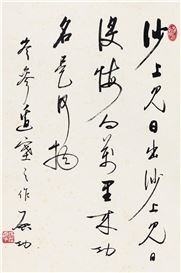 沙上见日出沙上见日
没悔向万里来功
名是何物
岑参过碛之作 启功